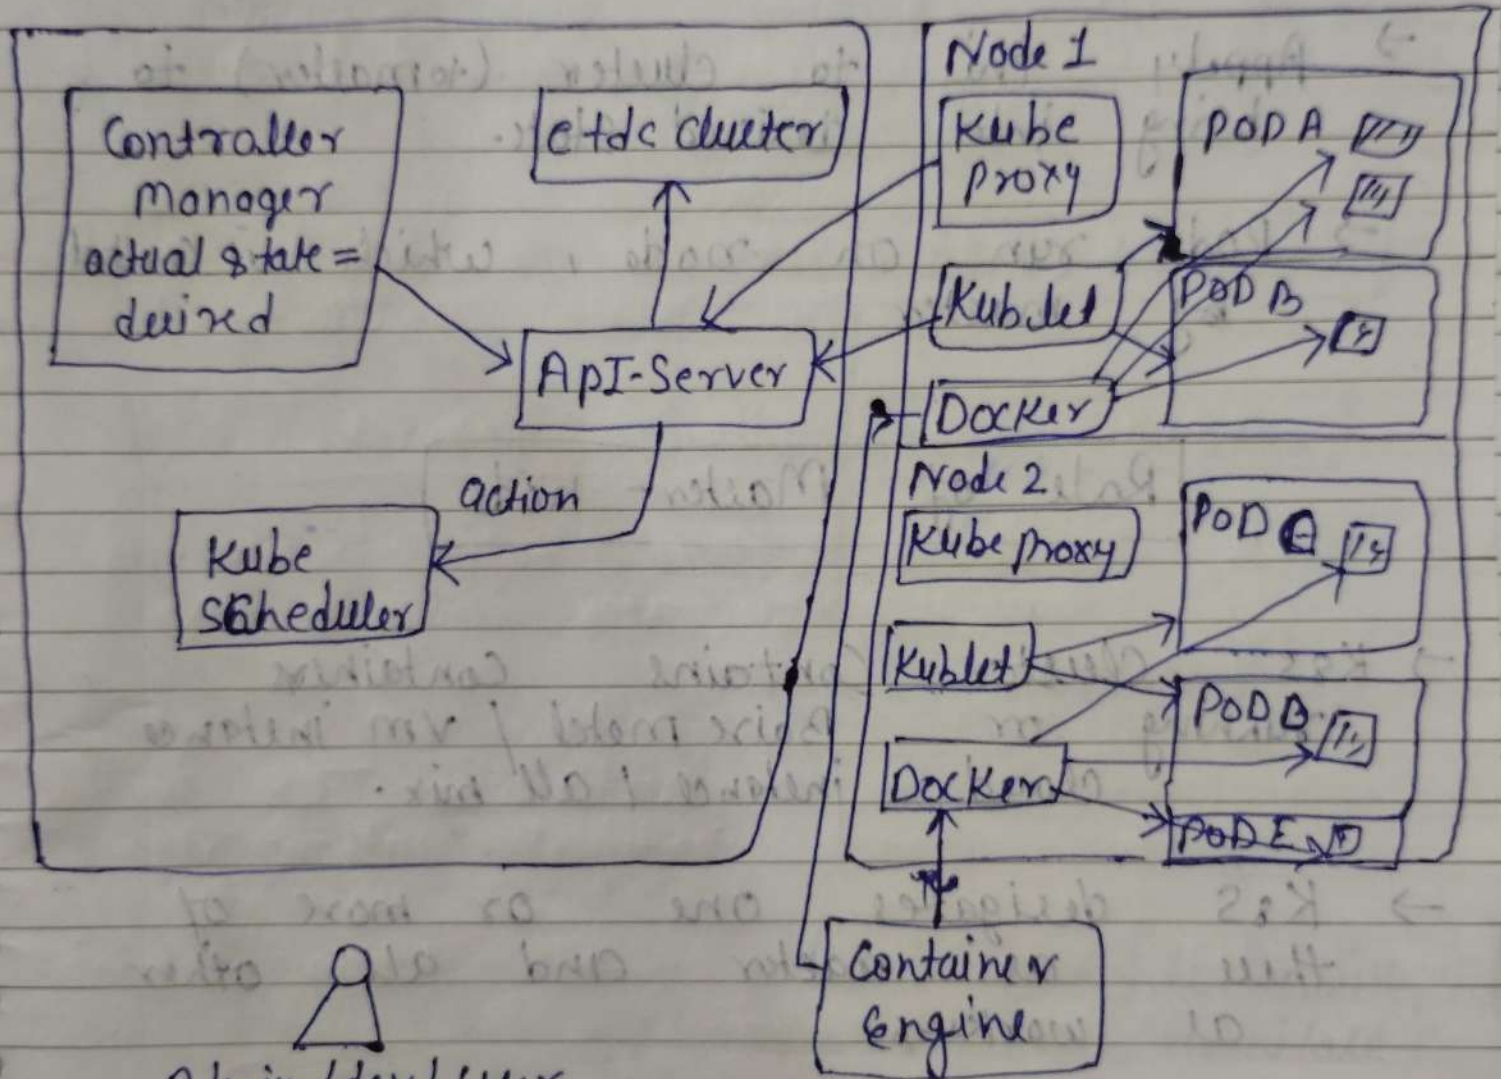 Controller
Manager
actual state =
deired
etdc cluster
API-Server
action
Kube
Scheduler
Node 1
Kube
Proxy
Kublet
Docker
POD A
POD B
Node 2
Kube Proxy
Kublet
Docker
POD C
POD D
POD E
Container
Engine